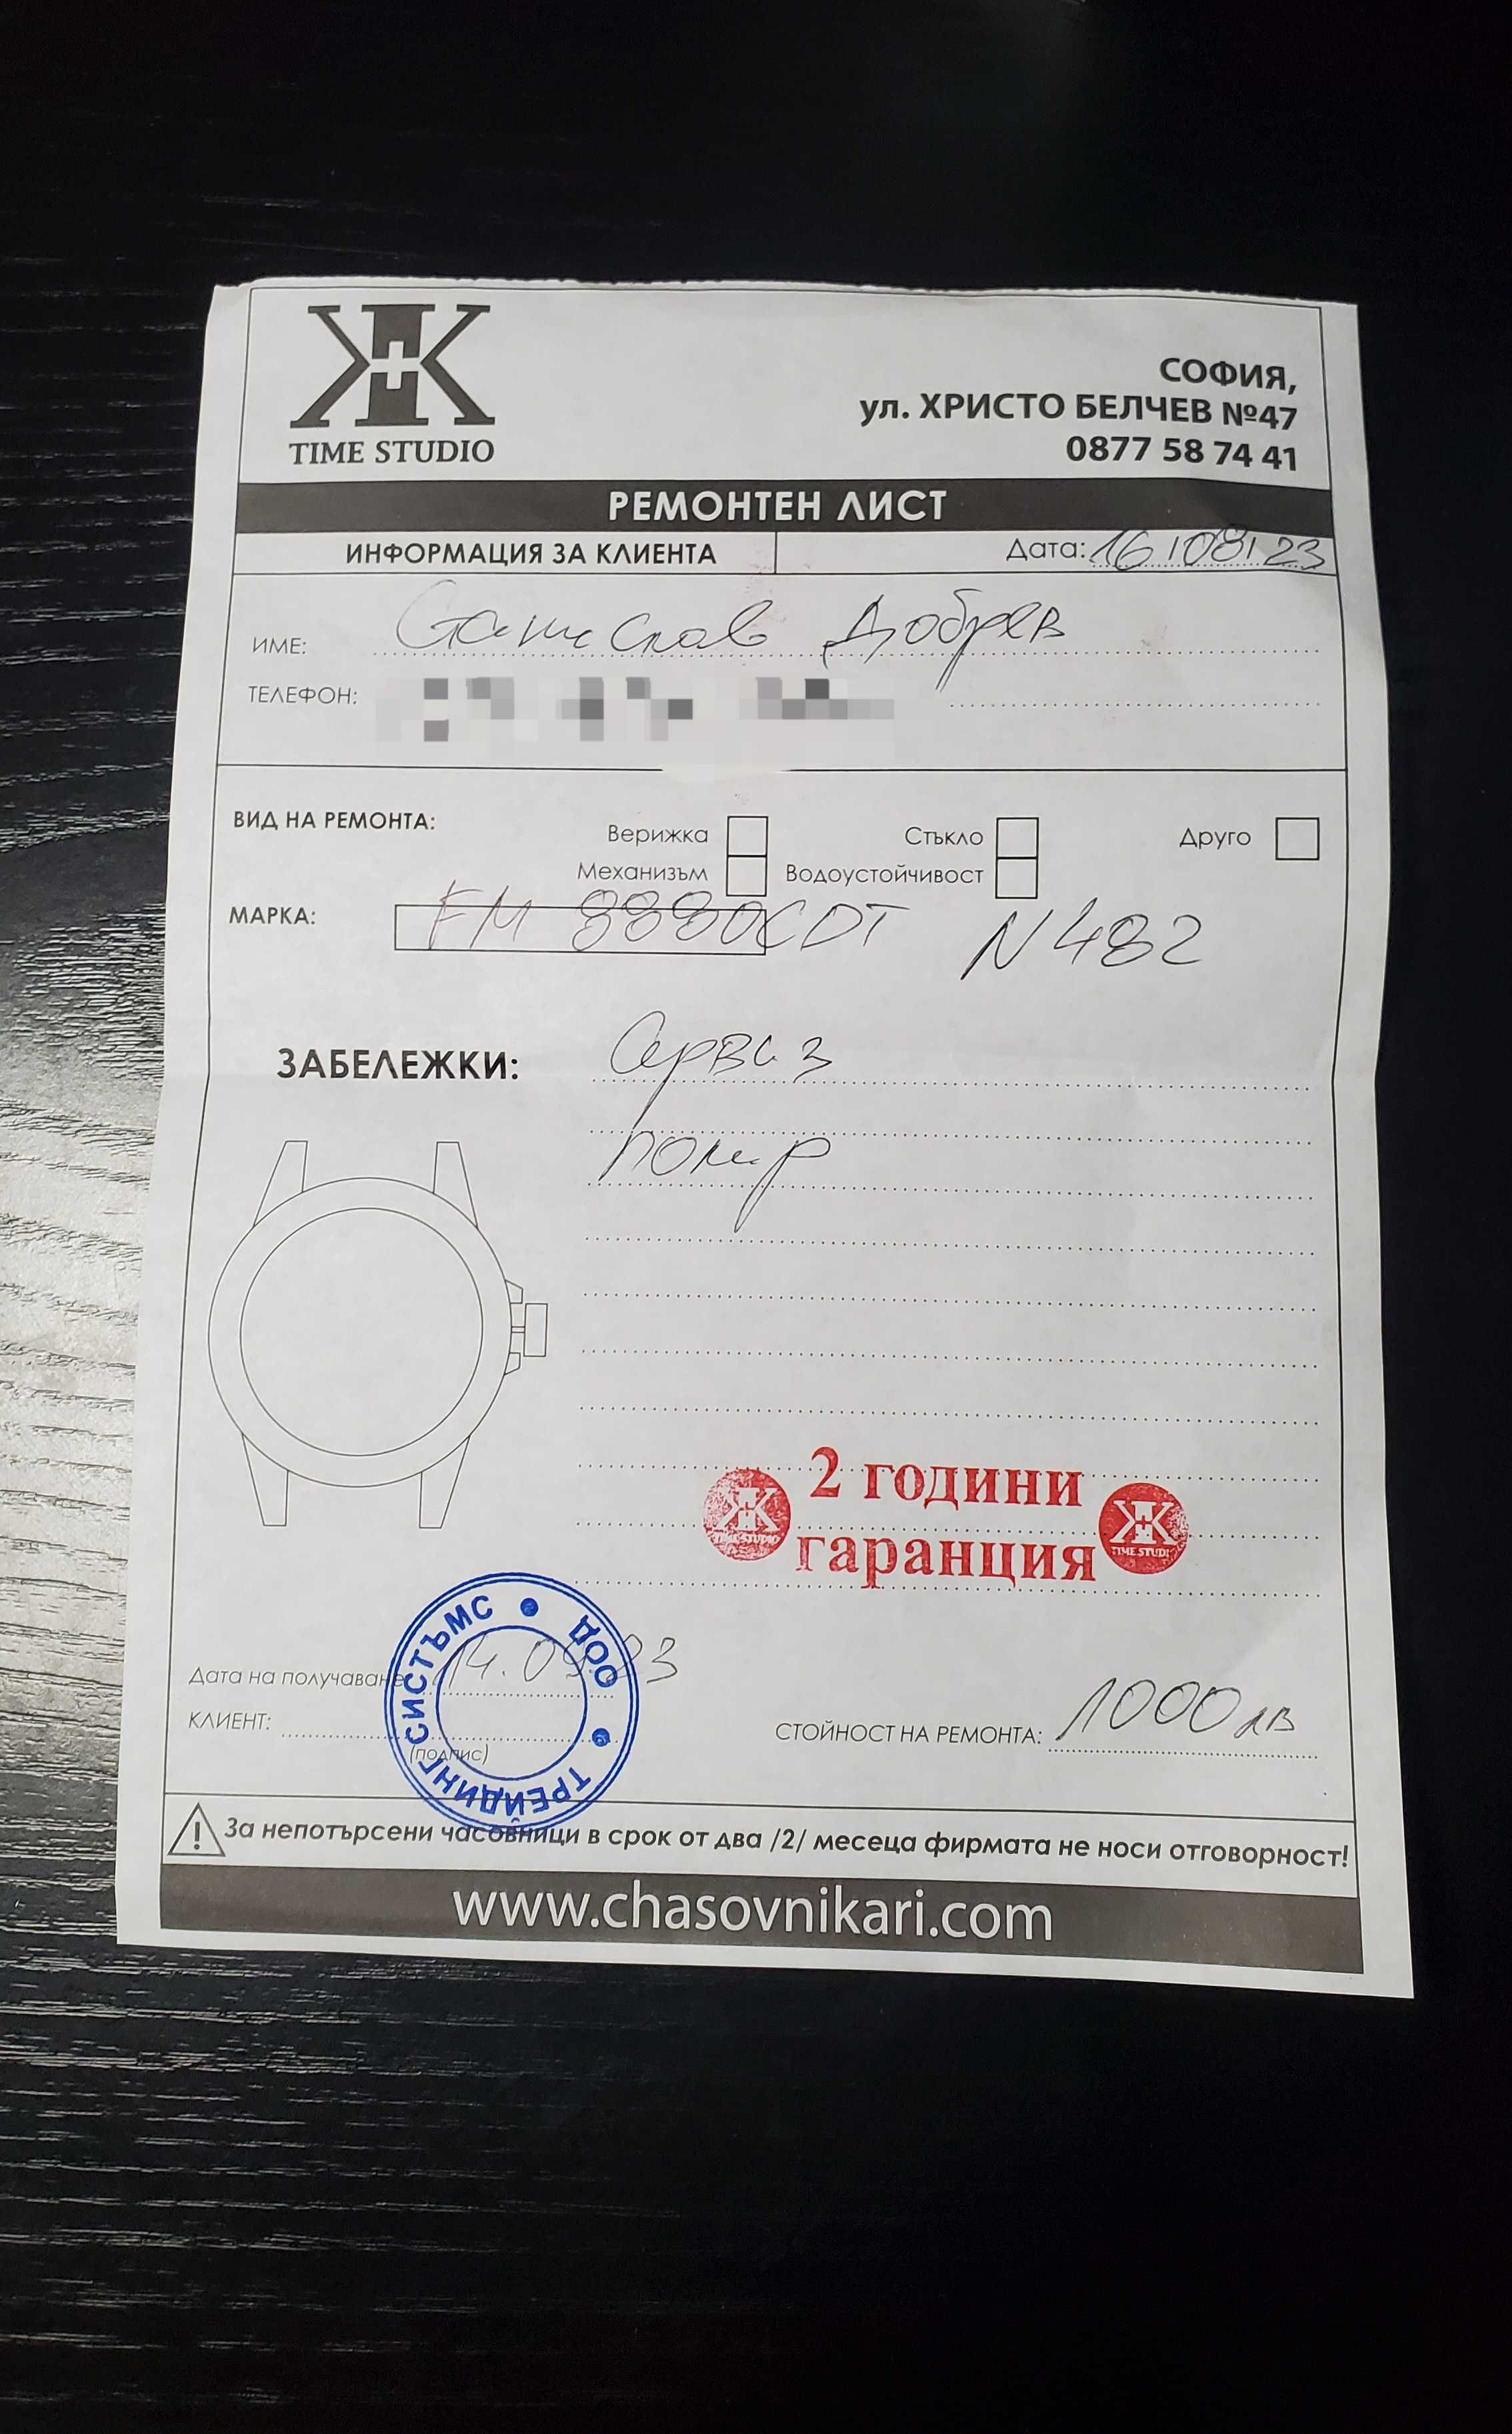 TIME STUDIO
СОФИЯ,
ул. ХРИСТО БЕЛЧЕВ №47
0877 58 74 41
РЕМОНТЕН ЛИСТ
ИНФОРМАЦИЯ ЗА КЛИЕНТА
Дата: 16/08/23
ИМЕ: Станислав Добрев
ТЕЛЕФОН:
ВИД НА РЕМОНТА:
Верижка
Стъкло
Друго
Механизъм
Водоустойчивост
МАРКА: FM 8880CDT N482
ЗАБЕЛЕЖКИ: Сервиз
полир
2 години
гаранция
TIME STUDIO
TIME STUDI
Дата на получаване 14.09.23
КЛИЕНТ:
(подпис)
СТОЙНОСТ НА РЕМОНТА: 1000лв
ТРЕЙДИНГ СИСТЪМС ООД
За непотърсени часовници в срок от два /2/ месеца фирмата не носи отговорност!
www.chasovnikari.com